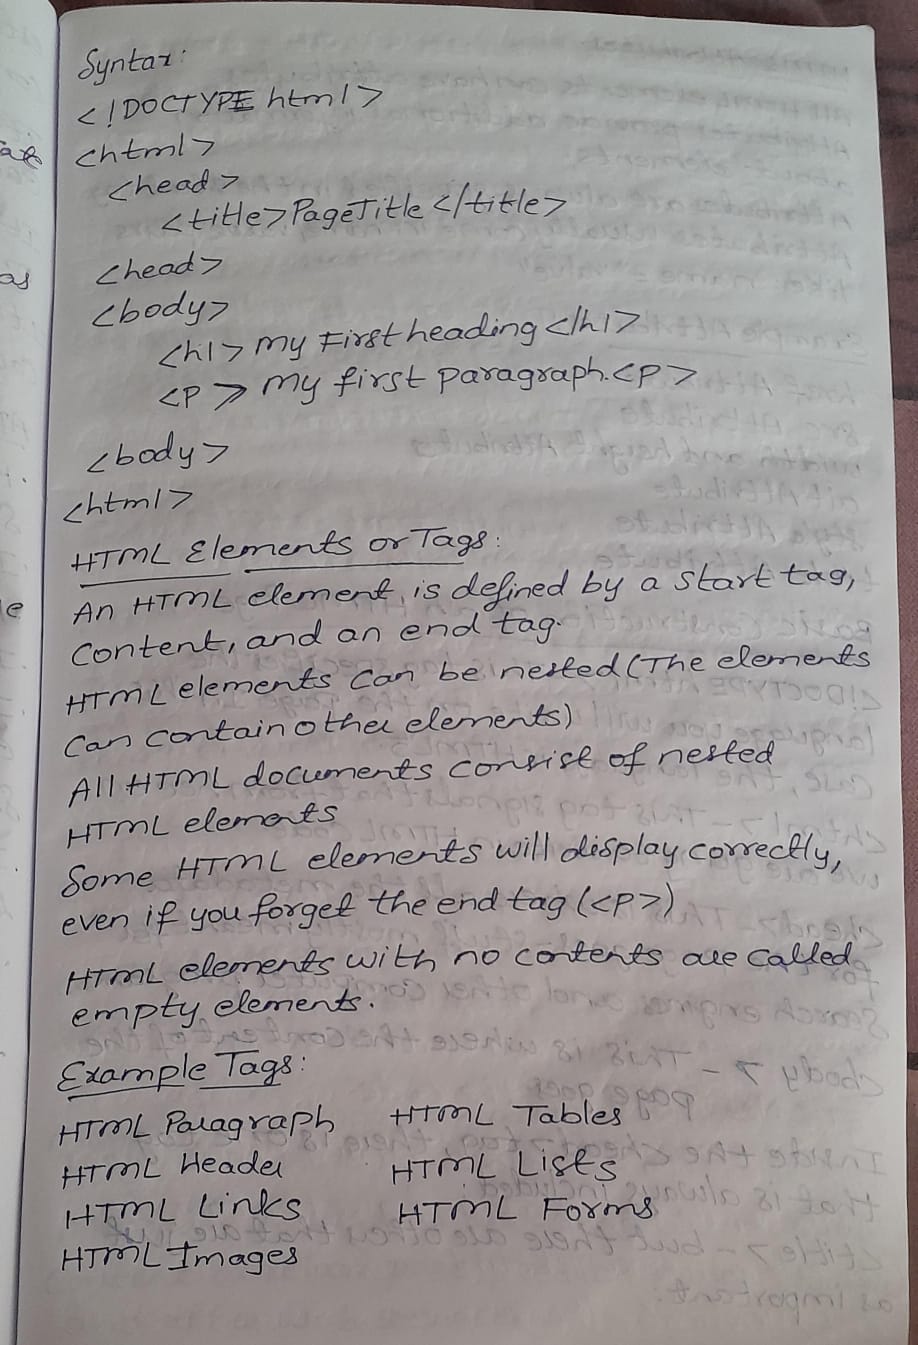 Syntax:
<!DOCTYPE html>
<html>
<head>
<title>PageTitle</title>
<head>
<body>
<h1>My First heading</h1>
<p>My first paragraph.<p>
<body>
<html>
HTML Elements or Tags:
An HTML element is defined by a start tag,
Content, and an end tag.
HTML elements can be nested (The elements
Can contain other elements)
All HTML documents consist of nested
HTML elements
Some HTML elements will display correctly,
even if you forget the end tag (<p>)
HTML elements with no contents are called
empty elements.
Example Tags:
HTML Paragraph HTML Tables
HTML Header HTML Lists
HTML Links HTML Forms
HTML Images